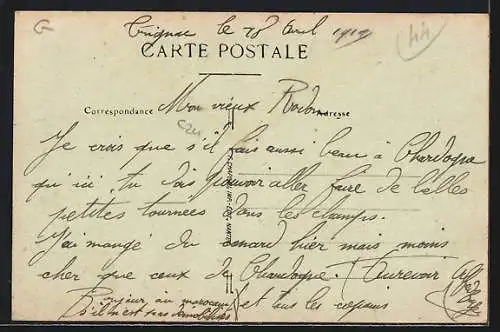 G
Trignac le 28 Avril 1919
44
CARTE POSTALE
Correspondance Mon vieux Adresse
Je crois que s'il fais aussi beau à Chardogne
qu'ici, tu dois pouvoir aller faire de belles
petites tournées dans les champs.
J'ai mangé du canard hier mais moins
cher que ceux de Chardogne. Aurevoir
Bonjour au
s'il n'est pas et tous les copains